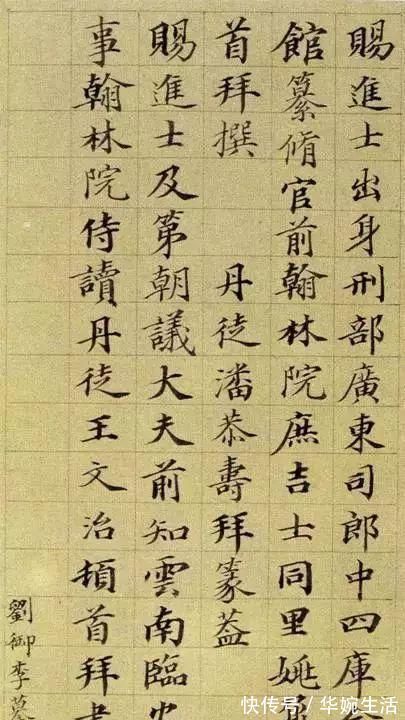 賜進士出身刑部廣東司郎中四庫
館纂脩官前翰林院庶吉士同里姚
首拜撰　丹徒潘恭壽拜篆蓋
賜進士及第朝議大夫前知雲南臨
事翰林院侍讀丹徒王文治頓首拜書
劉御李墓
快传号/华婉生活